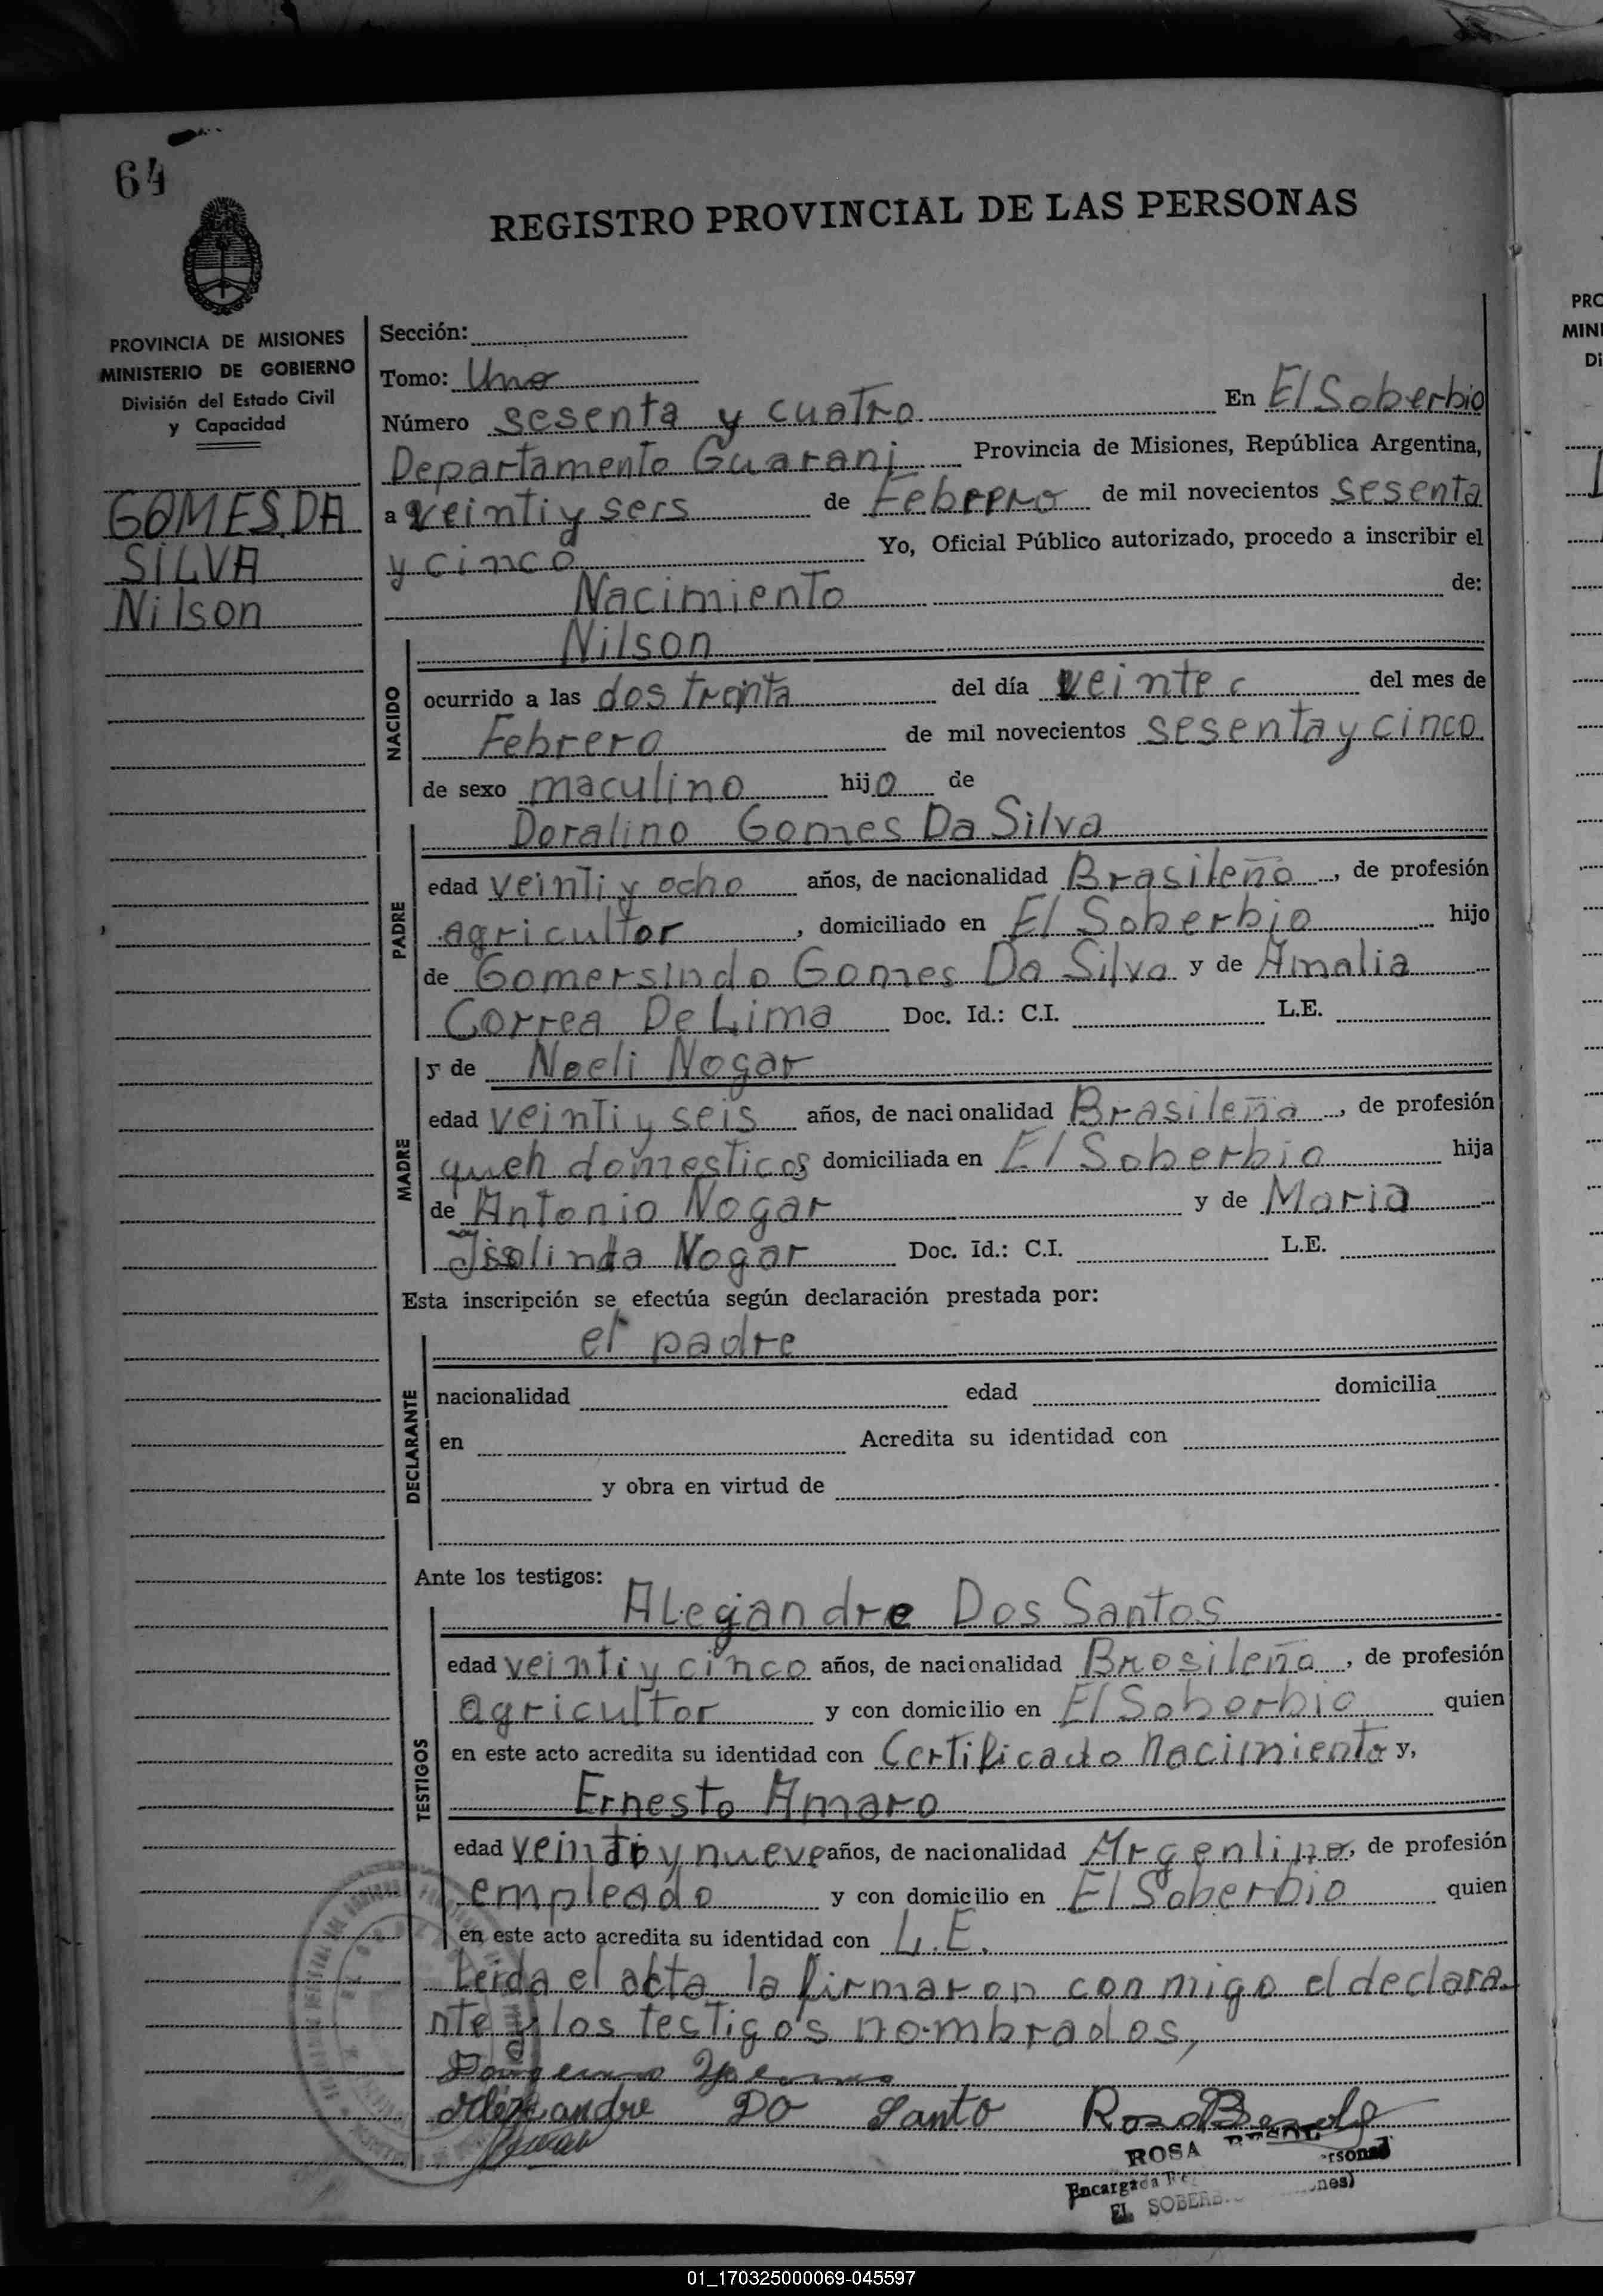 64
REGISTRO PROVINCIAL DE LAS PERSONAS
PROVINCIA DE MISIONES
MINISTERIO DE GOBIERNO
División del Estado Civil
y Capacidad
GOMES DA
SILVA
Nilson
Sección:
Tomo: Uno
Número sesenta y cuatro En El Soberbio
Departamento Guarani Provincia de Misiones, República Argentina,
a veinti y seis de Febrero de mil novecientos sesenta
y cinco Yo, Oficial Público autorizado, procedo a inscribir el
Nacimiento de:
NACIDO
Nilson
ocurrido a las dos treinta del día veinte del mes de
Febrero de mil novecientos sesenta y cinco
de sexo maculino hijo de
PADRE
Doralino Gomes Da Silva
edad veinti y ocho años, de nacionalidad Brasileño, de profesión
agricultor, domiciliado en El Soberbio hijo
de Gomersindo Gomes Da Silva y de Amalia
Correa De Lima Doc. Id.: C.I. L.E.
MADRE
y de Neeli Nogar
edad veinti y seis años, de naci onalidad Brasileña, de profesión
queh domesticos domiciliada en El Soberbio hija
de Antonio Nogar y de Maria
Isolinda Nogar Doc. Id.: C.I. L.E.
Esta inscripción se efectúa según declaración prestada por:
DECLARANTE
el padre
nacionalidad edad domicilia
en Acredita su identidad con
y obra en virtud de
Ante los testigos:
TESTIGOS
ALegandre Dos Santos
edad veinti y cinco años, de nacionalidad Brasileña, de profesión
agricultor y con domicilio en El Soberbio quien
en este acto acredita su identidad con Certificado Nacimiento y,
Ernesto Amaro
edad veinti y nueve años, de nacionalidad Argentino, de profesión
empleado y con domicilio en El Soberbio quien
en este acto acredita su identidad con L.E.
Leida el acta la firmaron con migo el declara
nte y los testigos nombrados,
DO Santo Rosa
ROSA
Encargada
EL SOBERB
01_170325000069-045597
PRO
MINI
Di